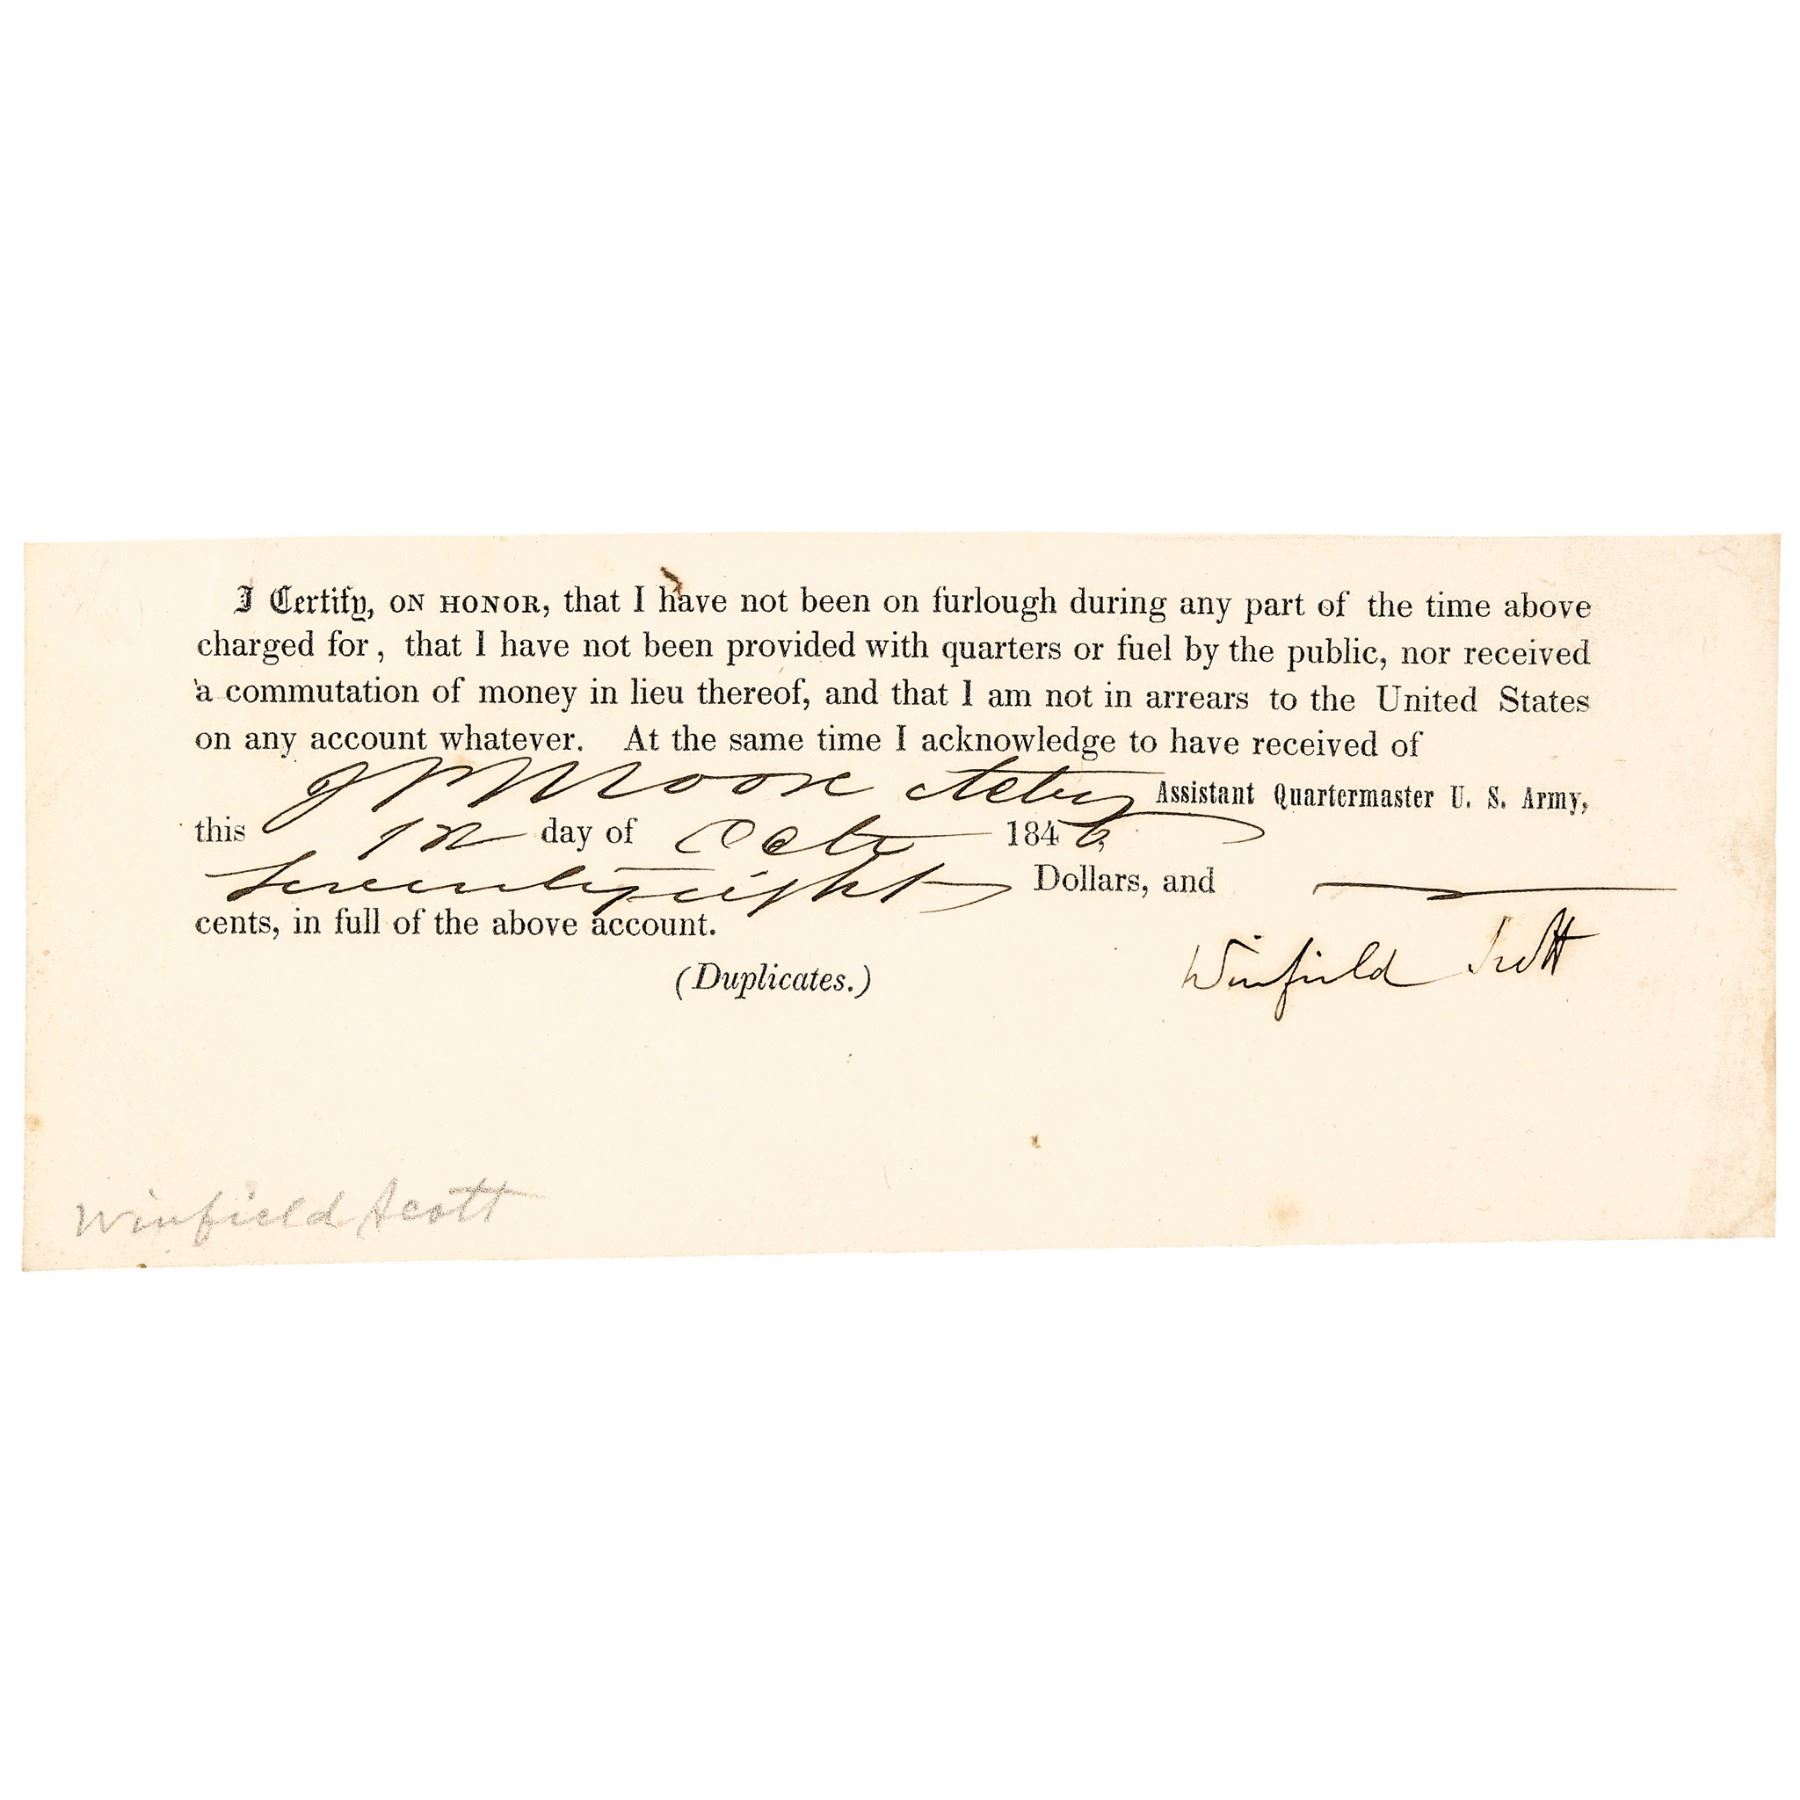 I Certify, ON HONOR, that I have not been on furlough during any part of the time above
charged for, that I have not been provided with quarters or fuel by the public, nor received
a commutation of money in lieu thereof, and that I am not in arrears to the United States
on any account whatever. At the same time I acknowledge to have received of
Moore Acting Assistant Quartermaster U. S. Army,
this 12 day of Octr 1846
Seventy eight Dollars, and —
cents, in full of the above account.
(Duplicates.)
Winfield Scott
Winfield Scott